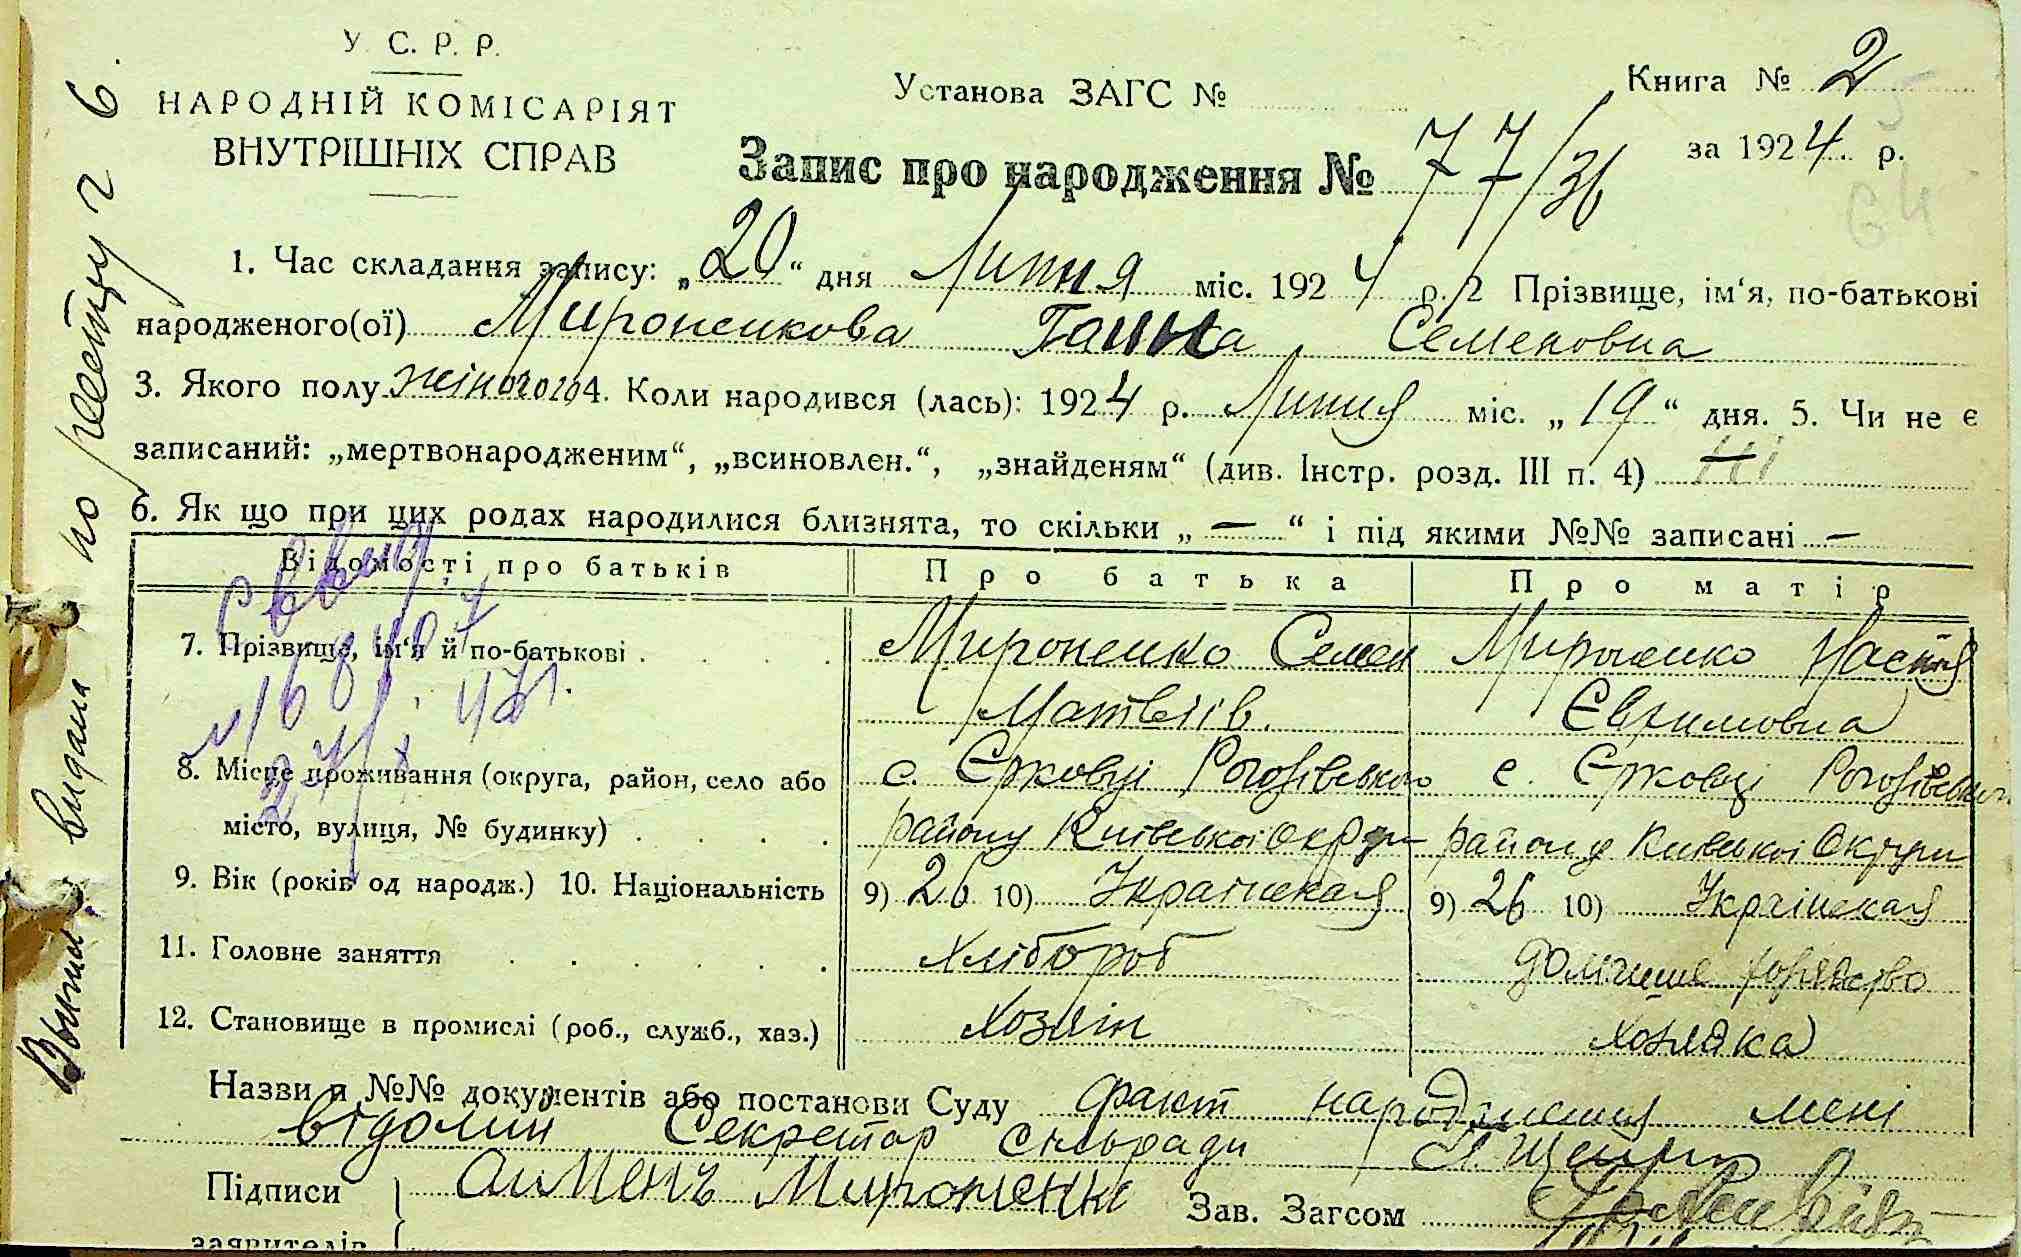 У. С. Р. Р.
НАРОДНІЙ КОМІСАРІЯТ
ВНУТРІШНІХ СПРАВ
Установа ЗАГС №
Книга № 2
за 1924. р.
Запис про народження № 77/36
1. Час складання запису: „20“ дня Липня міс. 1924 р. 2 Прізвище, ім‘я, по-батькові
народженого(ої) Мироненкова Ганна Семеновна
3. Якого полу жіночого 4. Коли народився (лась): 1924 р. Липня міс. „19“ дня. 5. Чи не є
записаний: „мертвонародженим“, „всиновлен.“, „знайденям“ (див. Інстр. розд. III п. 4) Ні
6. Як що при цих родах народилися близнята, то скільки „—“ і під якими №№ записані —
Відомості про батьків Про батька Про матір
7. Прізвище, ім‘я й по-батькові Мироненко Семен Мироненко Настя
Матвеів. Євхимовна
8. Місце проживання (округа, район, село або с. Єрковці Рогозівського с. Єрковці Рогозівського
місто, вулиця, № будинку) району Київської Округи району Київської Округи
9. Вік (років од народж.) 10. Національність 9) 26 10) Українская 9) 26 10) Українская
11. Головне заняття Хлібороб домашнє
12. Становище в промислі (роб., служб., хаз.) Хозяін хозяйка
Назви й №№ документів або постанови Суду факт народження мені
відомий Секретар Сільради
Підписи Мироненко Зав. Загсом
заявителів
Выпись видана по реестру г 6.